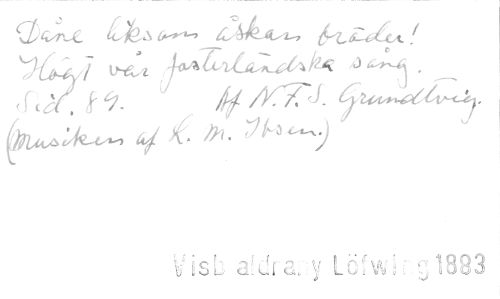 Dåne liksom åskan bröder!
Högt vår fosterländska sång.
Sid. 89. Af N. F. S. Grundtvig.
(Musiken af L. M. Ibsen.)
Visb aldrany Löfwing 1883